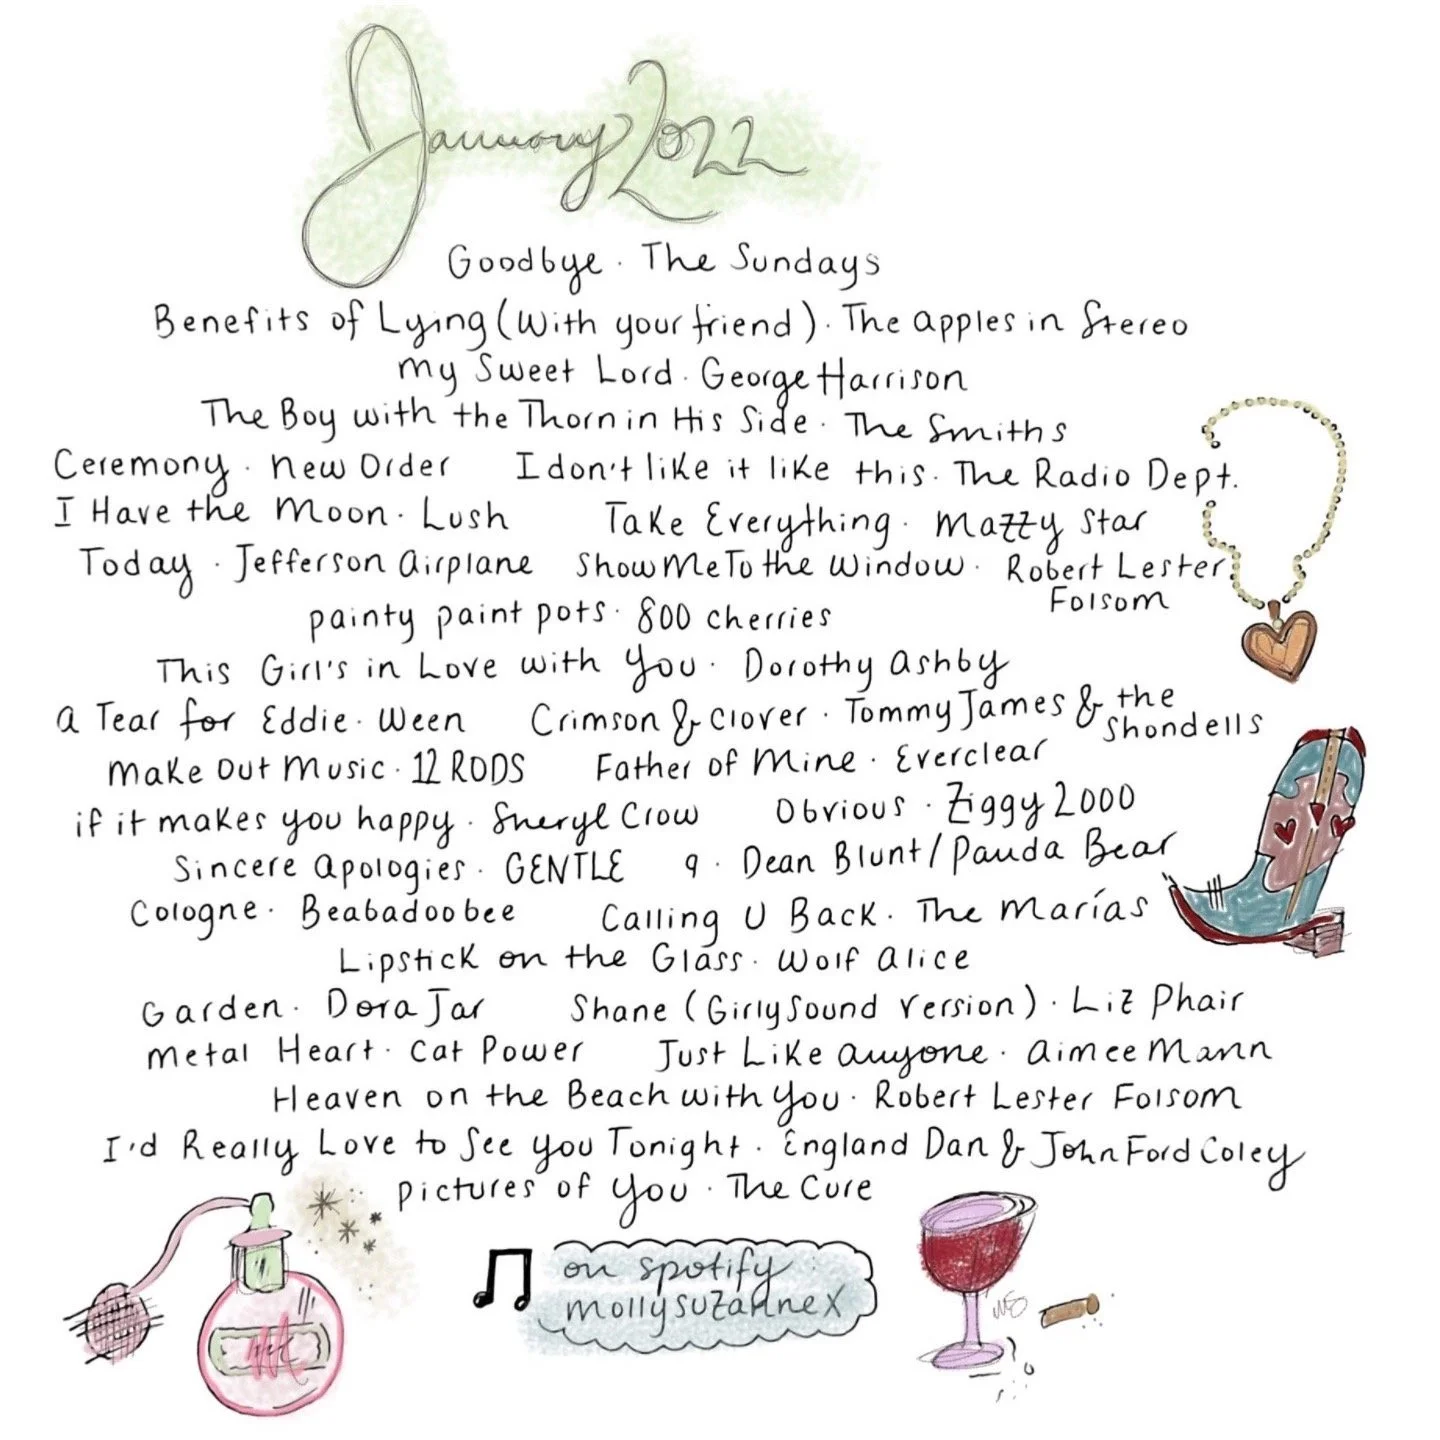 January 2022
Goodbye · The Sundays
Benefits of Lying (with your friend) · The apples in Stereo
my Sweet Lord · George Harrison
The Boy with the Thorn in His Side · The Smiths
Ceremony · New Order I don't like it like this · The Radio Dept.
I Have the Moon · Lush Take Everything · Mazzy Star
Today · Jefferson Airplane Show Me To the Window · Robert Lester
Folsom
painty paint pots · 800 cherries
This Girl's in Love with You · Dorothy Ashby
a Tear for Eddie · Ween Crimson & Clover · Tommy James & the
Shondells
Make Out Music · 12 RODS Father of Mine · Everclear
if it makes you happy · Sheryl Crow Obvious · Ziggy 2000
Sincere Apologies · GENTLE 9 · Dean Blunt/Panda Bear
Cologne · Beabadoobee Calling U Back · The Marías
Lipstick on the Glass · Wolf Alice
Garden · Dora Jar Shane (Girly Sound Version) · Liz Phair
Metal Heart · Cat Power Just Like Anyone · Aimee Mann
Heaven on the Beach with You · Robert Lester Folsom
I'd Really Love to See you Tonight · England Dan & John Ford Coley
pictures of You · The Cure
on spotify
mollysuzannex